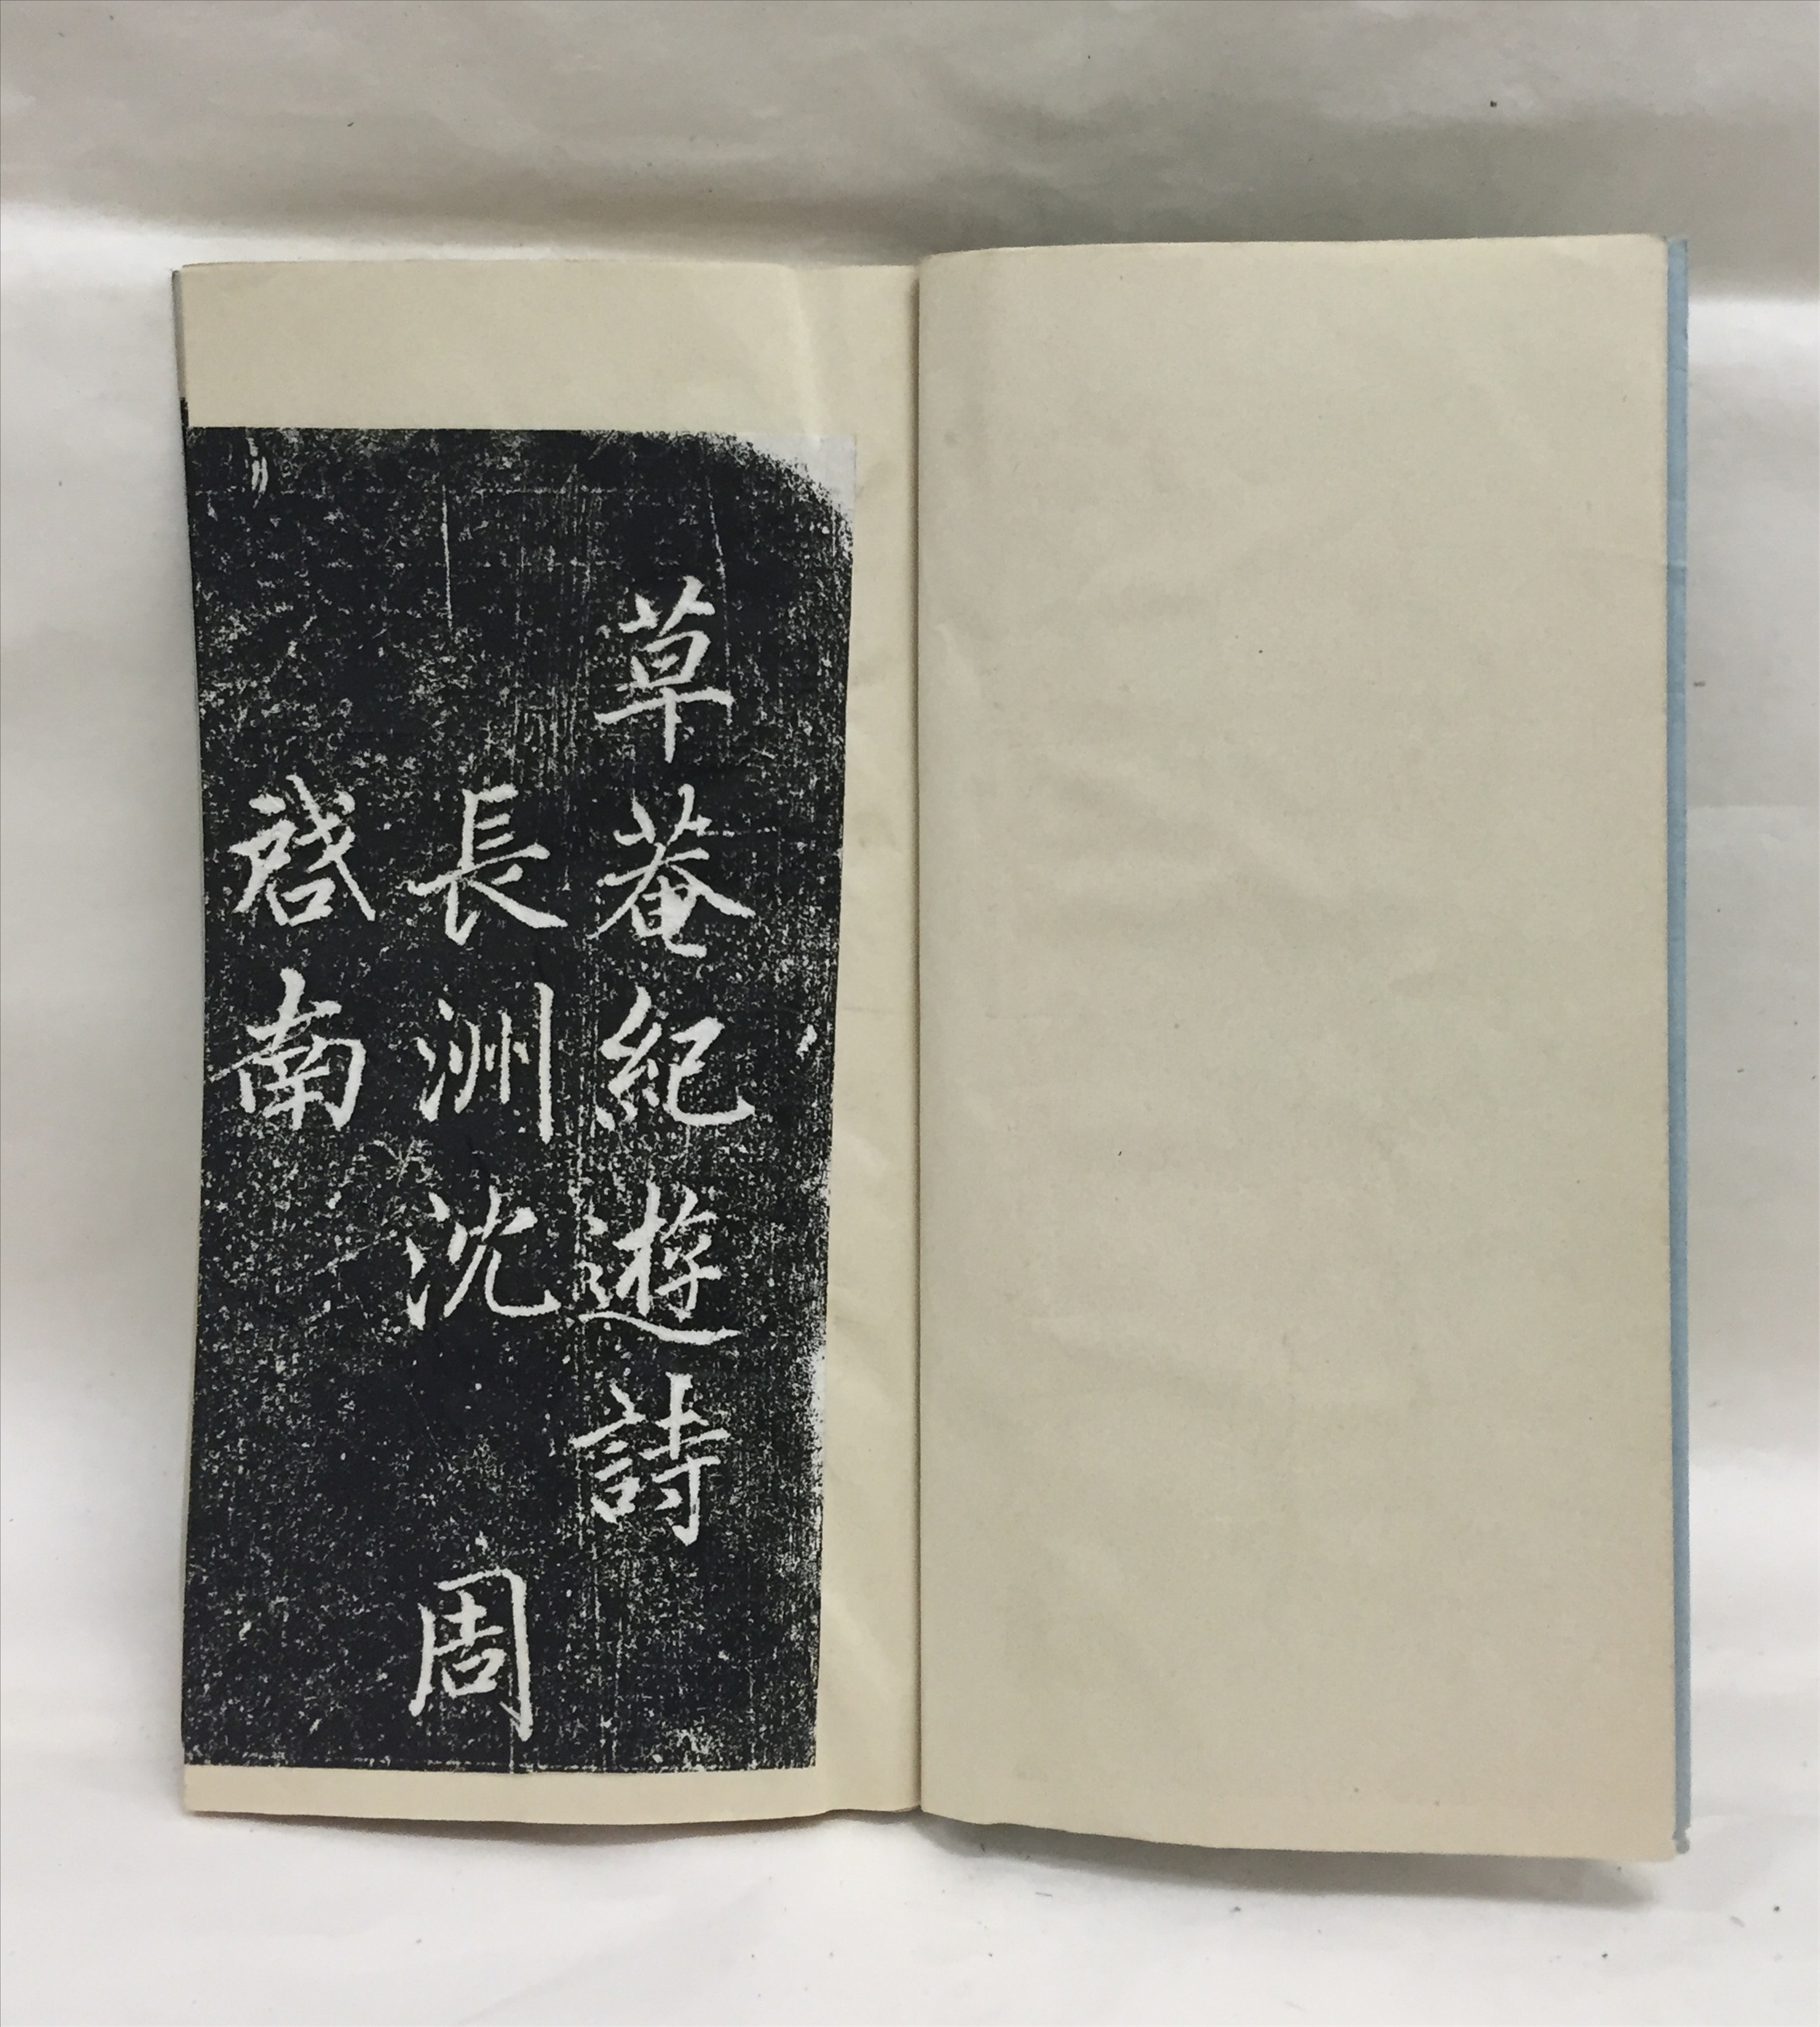 草菴紀遊詩
長洲沈周
啓南